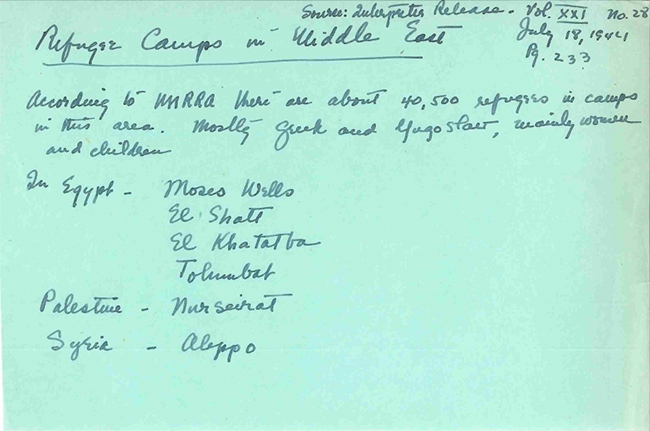 Source: Interpreter Release - Vol. XXI No. 28
July 18, 1944
Pg. 233
Refugee Camps in Middle East
According to UNRRA there are about 40,500 refugees in camps
in this area. Mostly Greek and Yugoslav, mainly women
and children
In Egypt - Moses Wells
El Shatt
El Khatatba
Tolumbat
Palestine - Nurseirat
Syria - Aleppo